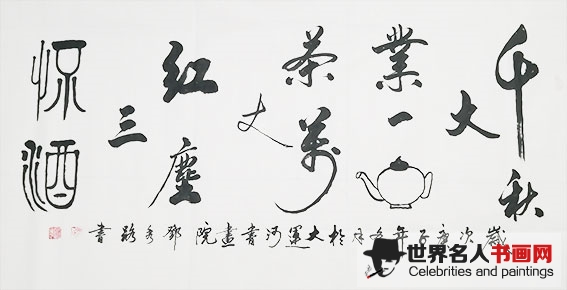 千秋大業一茶萬丈紅塵三杯酒
歲次庚子年冬月於大運河書畫院鄧書
世界名人书画网
Celebrities and paintings